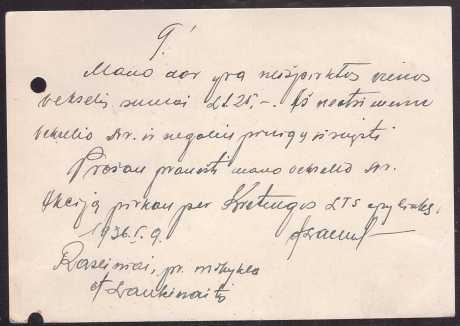 Mano dar yra neišpirktas vienas
vekselis sumai Lt. 25,-. Aš neatsimenu
vekselio Nr. ir negaliu pinigų išsiųsti
Prašau pranešti mano vekselio Nr.
Akciją pirkau per Kretingos LTS apylinkę.
1936.I.9.
Raseiniai, pr. mokykla